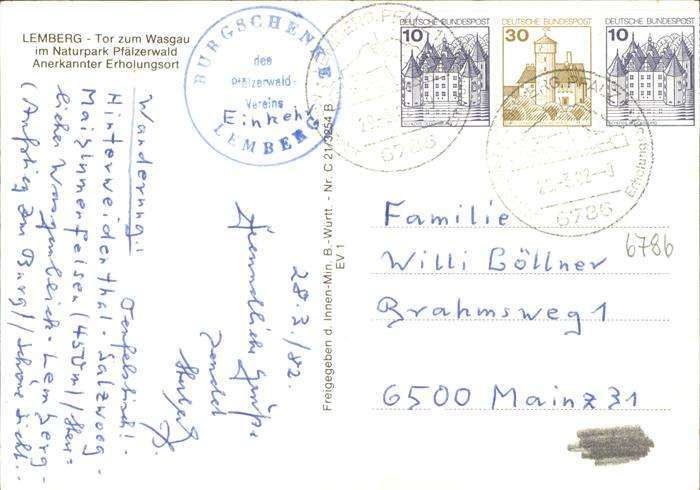 LEMBERG - Tor zum Wasgau
im Naturpark Pfälzerwald
Anerkannter Erholungsort
BURGSCHENKE
des
Pfälzerwald-
Vereins
Einkehr
LEMBERG
10 DEUTSCHE BUNDESPOST
30 DEUTSCHE BUNDESPOST
10 DEUTSCHE BUNDESPOST
6786
6786
Wanderung:
Teufelstisch! -
Hinterweidenthal - Salzwoog -
Maiblumenfelsen (450m) / Herr=
licher Wasgaublick - Lemberg -
(Aufstieg zur Burg) / Schöne Sicht...
28.3./82.
Freundliche Grüße
Freigegeben d. Innen-Min. B.-Württ. - Nr. C 21/3254 B
EV 1
Familie
Willi Böllner
Brahmsweg 1
6500 Mainz 31
6786